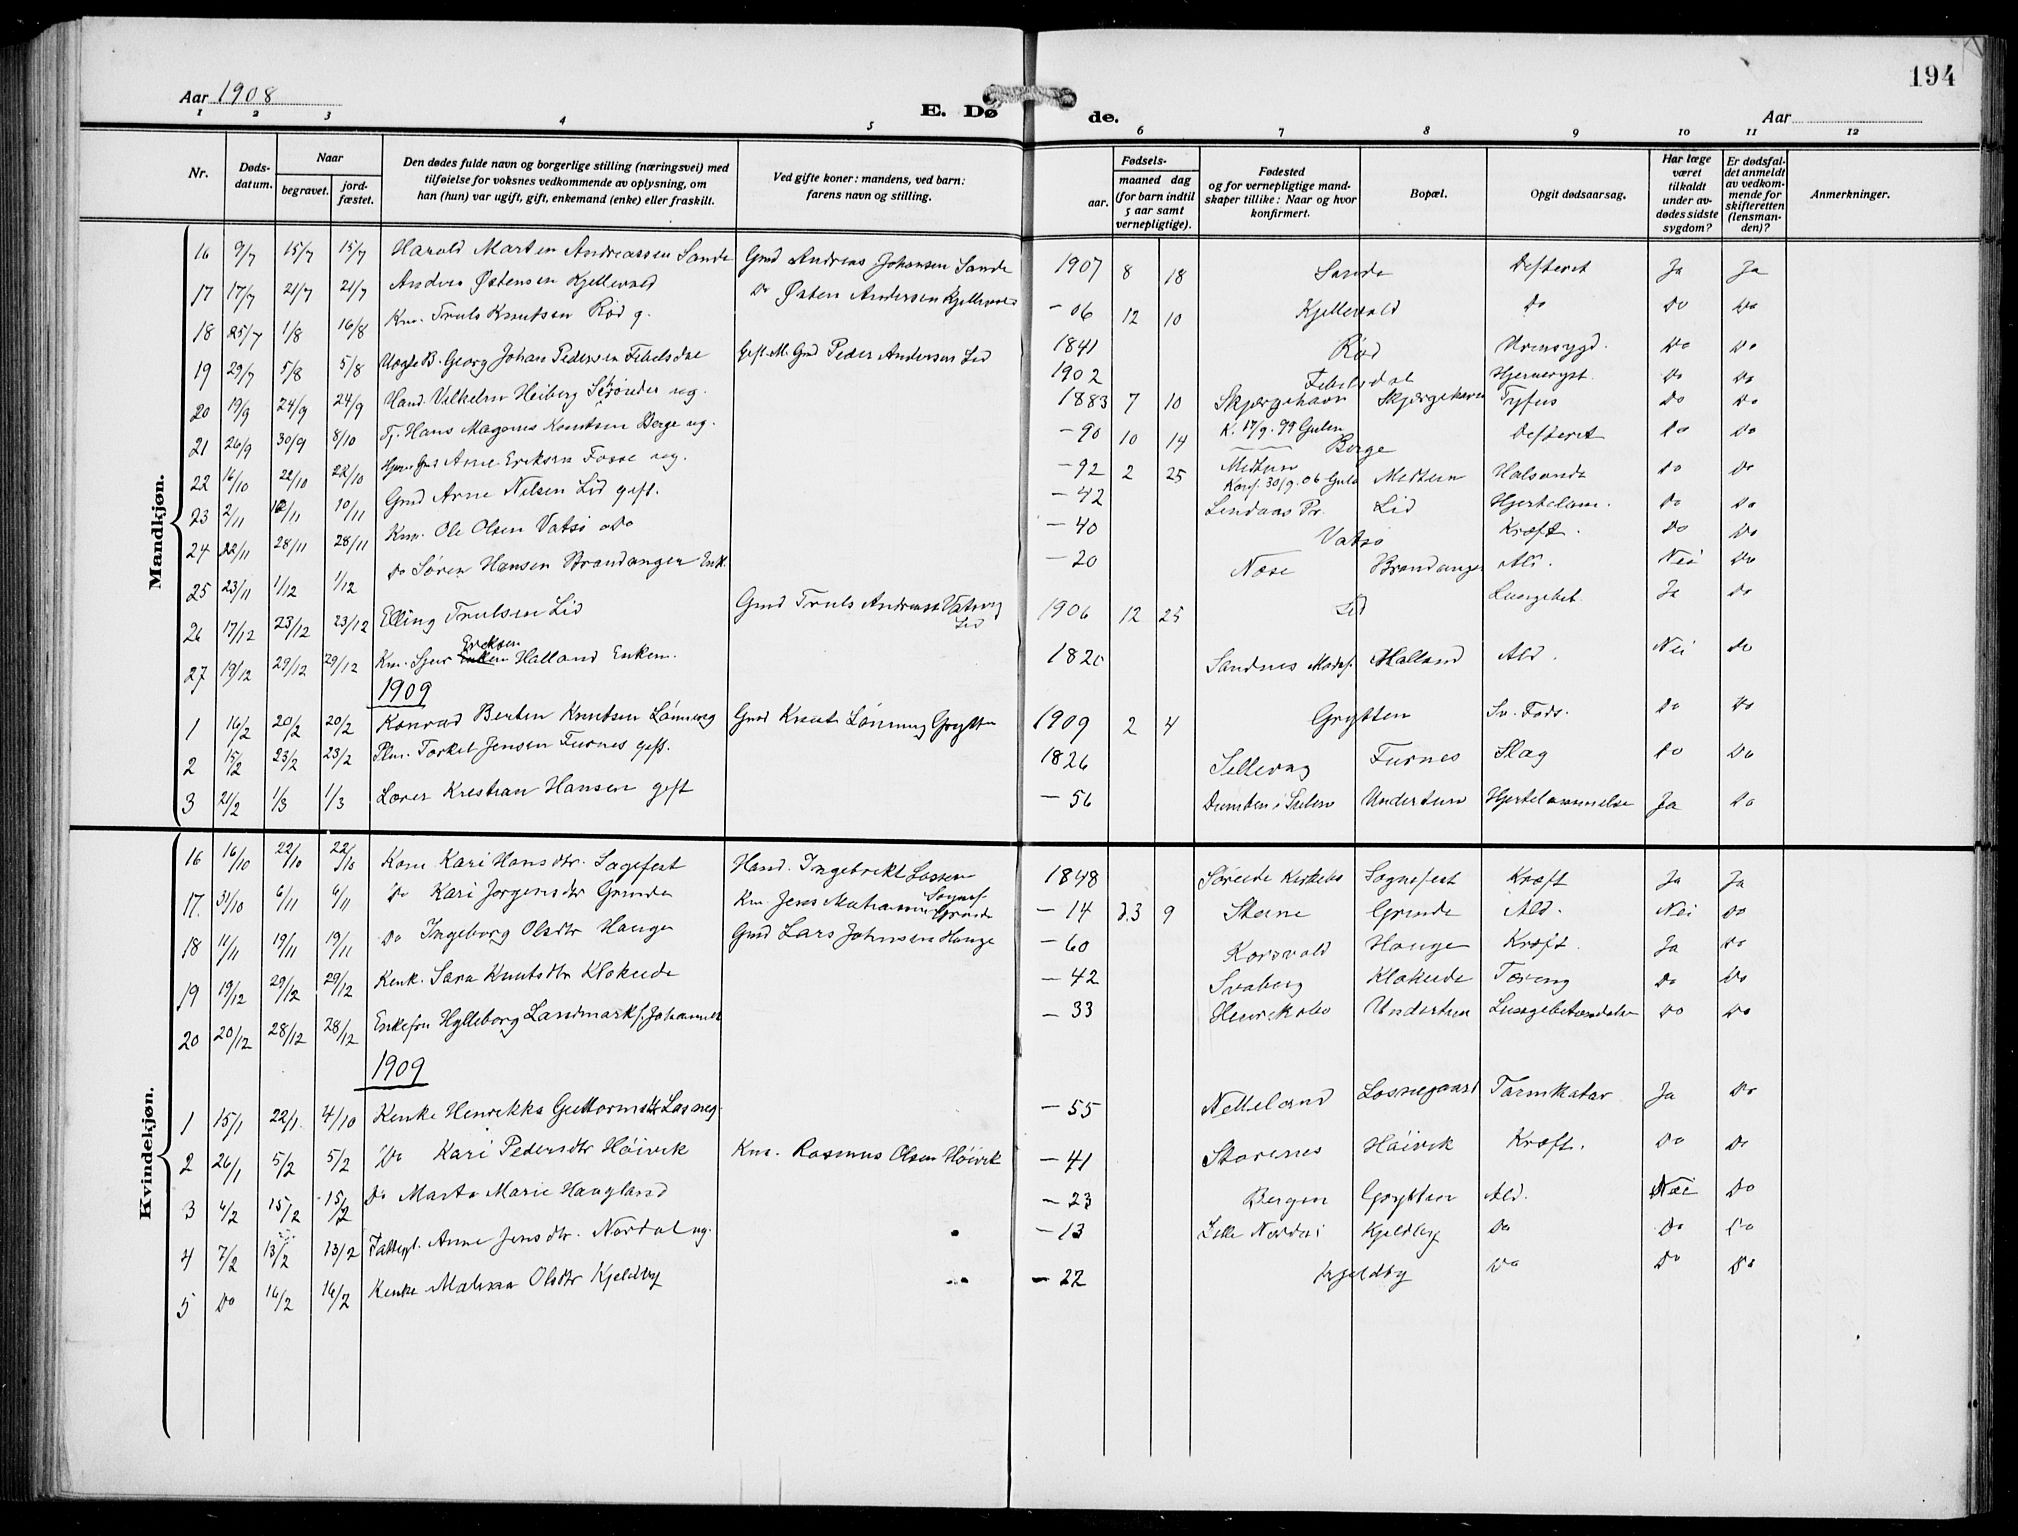 Aar 1908
E. Døde.
Aar
194
1 2 3 4 5 6 7 8 9 10 11 12
Nr.
Døds-datum.
Naar
begravet.
jord-fæstet.
Den dødes fulde navn og borgerlige stilling (næringsvei) med
tilføielse for voksnes vedkommende av oplysning, om
han (hun) var ugift, gift, enkemand (enke) eller fraskilt.
Ved gifte koner: mandens, ved barn:
farens navn og stilling.
Fødsels-
aar.
maaned dag
(for barn indtil
5 aar samt
vernepligtige).
Fødested
og for vernepligtige mand-
skaper tillike: Naar og hvor
konfirmert.
Bopæl.
Opgit dødsaarsag.
Har læge
været
tilkaldt
under av-
dødes sidste
sygdom?
Er dødsfal-
det anmeldt
av vedkom-
mende for
skifteretten
(lensman-
den)?
Anmerkninger.
Mandkjøn.
16 9/7 15/7 15/7 Harald Martin Andreassen Sande Gmd Andreas Johansen Sande 1907 8 18 Sande Defteret Ja Ja
17 17/7 21/7 21/7 Anders Østensen Kjellevold Do Østen Andersen Kjellevold – 06 12 10 Kjellevold Do Do Do
18 25/7 1/8 16/8 Km. Truls Knutsen Rød g. 1841 Rød Urensygd. Do Do
19 29/7 5/8 5/8 Uægte B. Georg Johan Pedersen Gift. M. Gmd Peder Andersen Lid 1902 Do Do
20 19/9 24/9 24/9 Hand. Vilhelm Heiberg ug. 1883 7 10 Skjærgehavn Skjærgehavn Tyfus Do Do
K. 17/9. 99 Gulen
21 26/9 30/9 8/10 Tj. Hans Magnus Knutsen Berge ug. – 90 10 14 Berge Defteret Do Do
22 16/10 22/10 22/10 Arne Eriksen Fosse ug. – 92 2 25 Midtun Midtun Do Do
Konf. 30/9. 06
23 2/11 10/11 10/11 Gmd Arne Nilsen Lid gift. – 42 Lindaas Pr. Lid Hjertelam. Do Do
24 22/11 28/11 28/11 Km. Ole Olsen Vatsø Do – 40 Vatsø Kræft. Do Do
25 23/11 1/12 1/12 Do Søren Hansen Brandanger Enk. – 20 Næse Brandanger Ald. Nei Do
26 17/12 23/12 23/12 Elling Trulsen Lid Gmd Truls Lid 1906 12 25 Lid Lungebet. Ja Do
27 19/12 29/12 29/12 Km. Sjur Eriksen Halland Enkem. 1820 Sandnes Halland Ald. Nei Do
1909
1 16/2 20/2 20/2 Konrad Bertin Knutsen Lønning Gmd Knut Lønning Grytten 1909 2 4 Grytten Sv. Føds. Do Do
2 15/2 23/2 23/2 Plm. Torkel Jensen Furnes gift. 1826 Sellevag Furnes Slag Do Do
3 21/2 1/3 1/3 Lærer Kristian Hansen gift – 56 Undertun Hjertelammelse Ja Do
Kvindekjøn.
16 16/10 22/10 22/10 Kone Kari Hansdtr. Sognefest Hand. Ingebrikt Lassen Sognef. 1848 Søreide Kirkebø Sognefest Kræft Ja Ja
17. 31/10 6/11 6/11 Do Kari Jørgensdtr Grinde Km. Jens Grinde – 14 23 9 Steine Grinde Ald. Nei Do
18 11/11 19/11 19/11 Do Ingeborg Olsdtr Hauge Gmd Lars Johnsen Hauge – 60 Korsvold Hauge Kræft. Ja Do
19 19/12 29/12 29/12 Kenk. Sara Knutsdtr Klakeide – 42 Svaberg Klakeide Tæring Do Do
20 20/12 28/12 28/12 Enkefru Hylleborg Landmark f. Johannes – 33 Undertun Lungebetændelse Do Do
1909
1 15/1 22/1 4/10 Kenke Henrikka Guttormsdtr Losneg. – 55 Netteland Losnegaard Tarmkatar Ja Do
2 26/1 5/2 5/2 Do Kari Pedersdtr Høivik Km. Rasmus Olsen Høivik – 41 Storenes Høivik Kræft. Do Do
3 4/2 15/2 15/2 Do Marta Marie Haugland – 23 Bergen Grytten Ald. Nei Do
4 7/2 13/2 13/2 Anne Jensdtr. Nordal ug. – 13 Kjeldby Do Do Do
5 Do 16/2 16/2 Kenke Malena Olsdtr Kjeldby – 22 Kjeldby Do Do Do